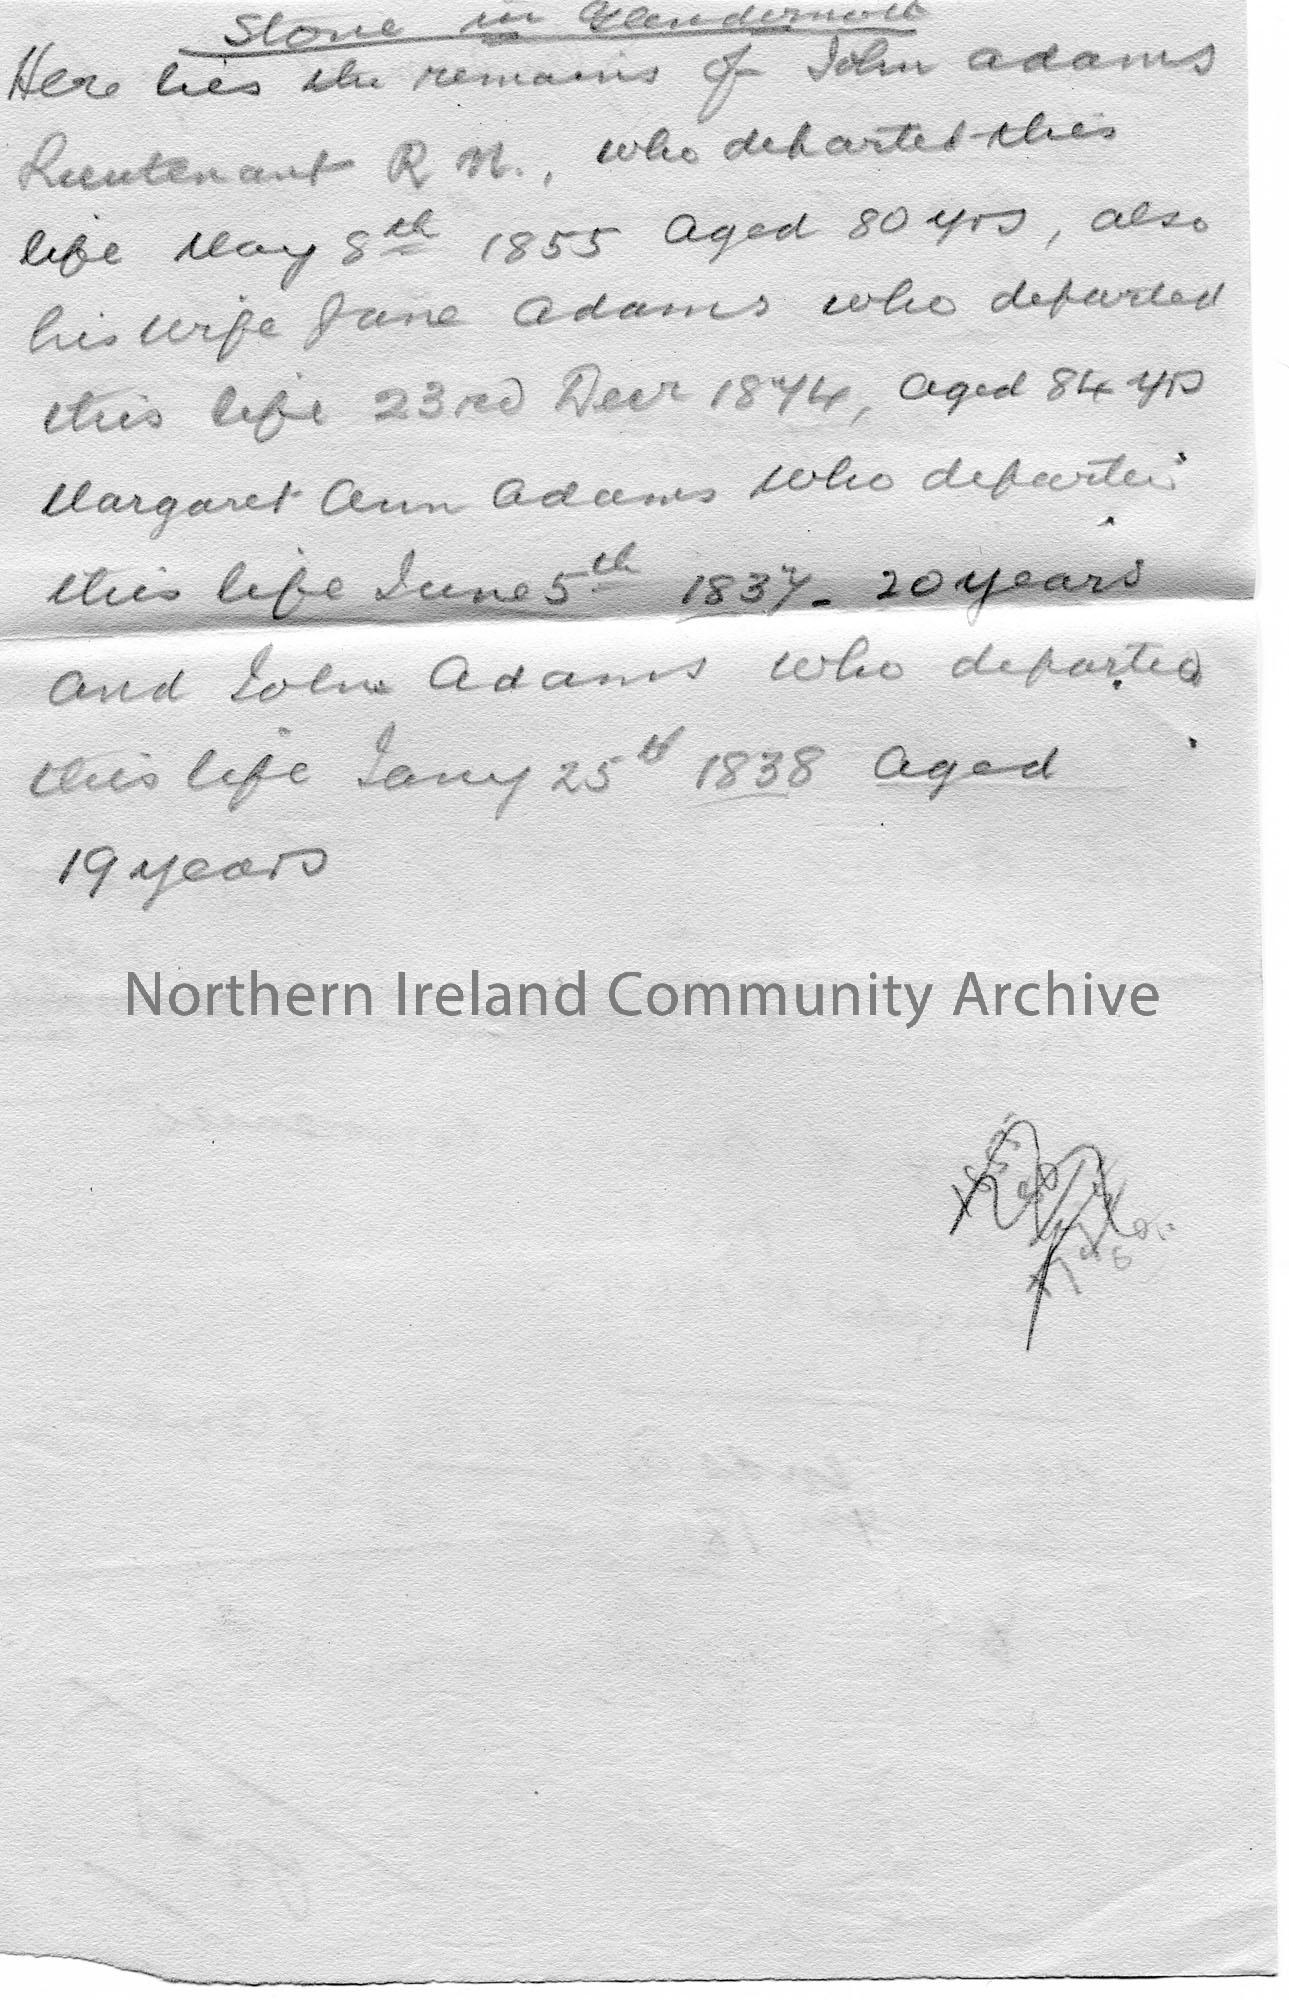 Stone in Glendermott
Here lies the remains of John Adams
Lieutenant R N., who departed this
life May 8th 1855 Aged 80 yrs, also
his wife Jane Adams who departed
this life 23rd Decr 1874, Aged 84 yrs
Margaret Ann Adams who departed
this life June 5th 1837 - 20 years
and John Adams who departed
this life Jany 25th 1838 Aged
19 years
Northern Ireland Community Archive